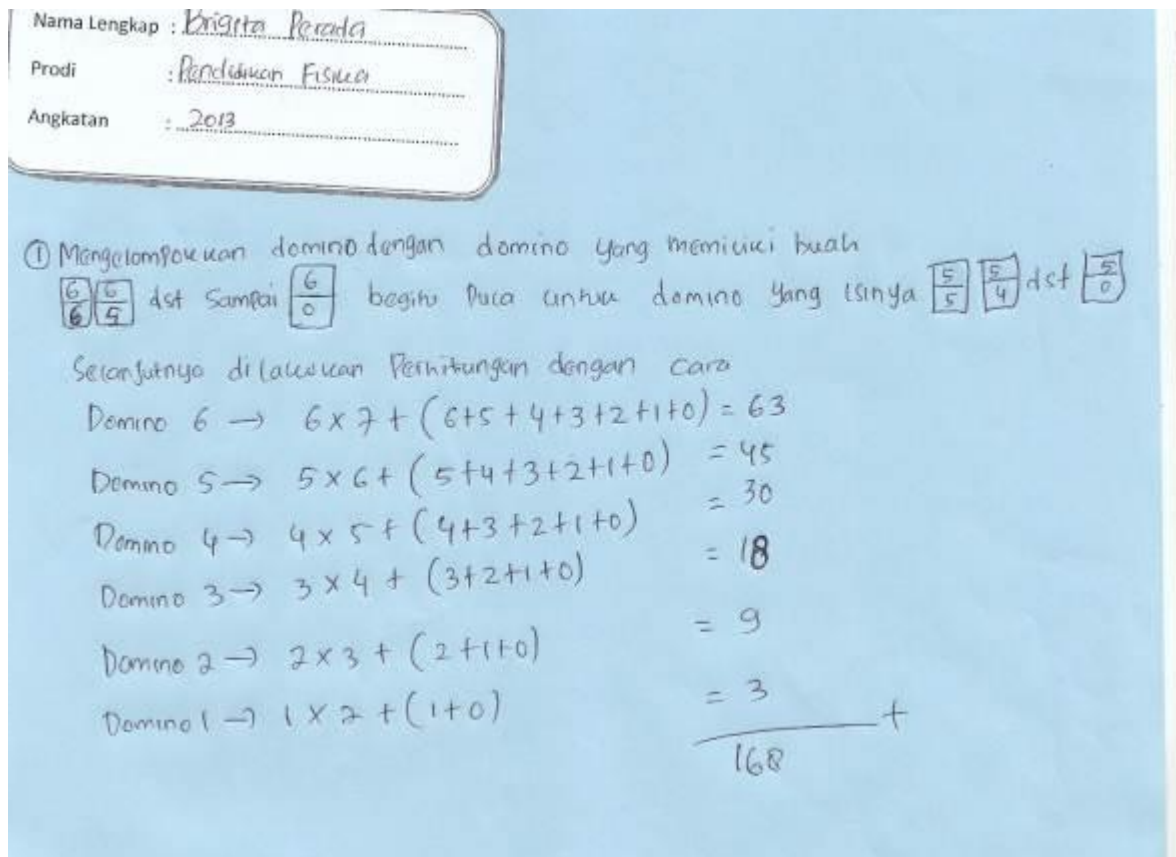 Nama Lengkap : Brigita Perada
Prodi : Pendidikan Fisika
Angkatan : 2013
① Mengelompokkan domino dengan domino yang memiliki buah
6/6 6/5 dst sampai 6/0 begitu Pula untuk domino yang isinya 5/5 5/4 dst 5/0
Selanjutnya dilakukan Perhitungan dengan cara
Domino 6 → 6 x 7 + (6+5+4+3+2+1+0) = 63
Domino 5 → 5 x 6 + (5+4+3+2+1+0) = 45
Domino 4 → 4 x 5 + (4+3+2+1+0) = 30
Domino 3 → 3 x 4 + (3+2+1+0) = 18
Domino 2 → 2 x 3 + (2+1+0) = 9
Domino 1 → 1 x 2 + (1+0) = 3
+
168